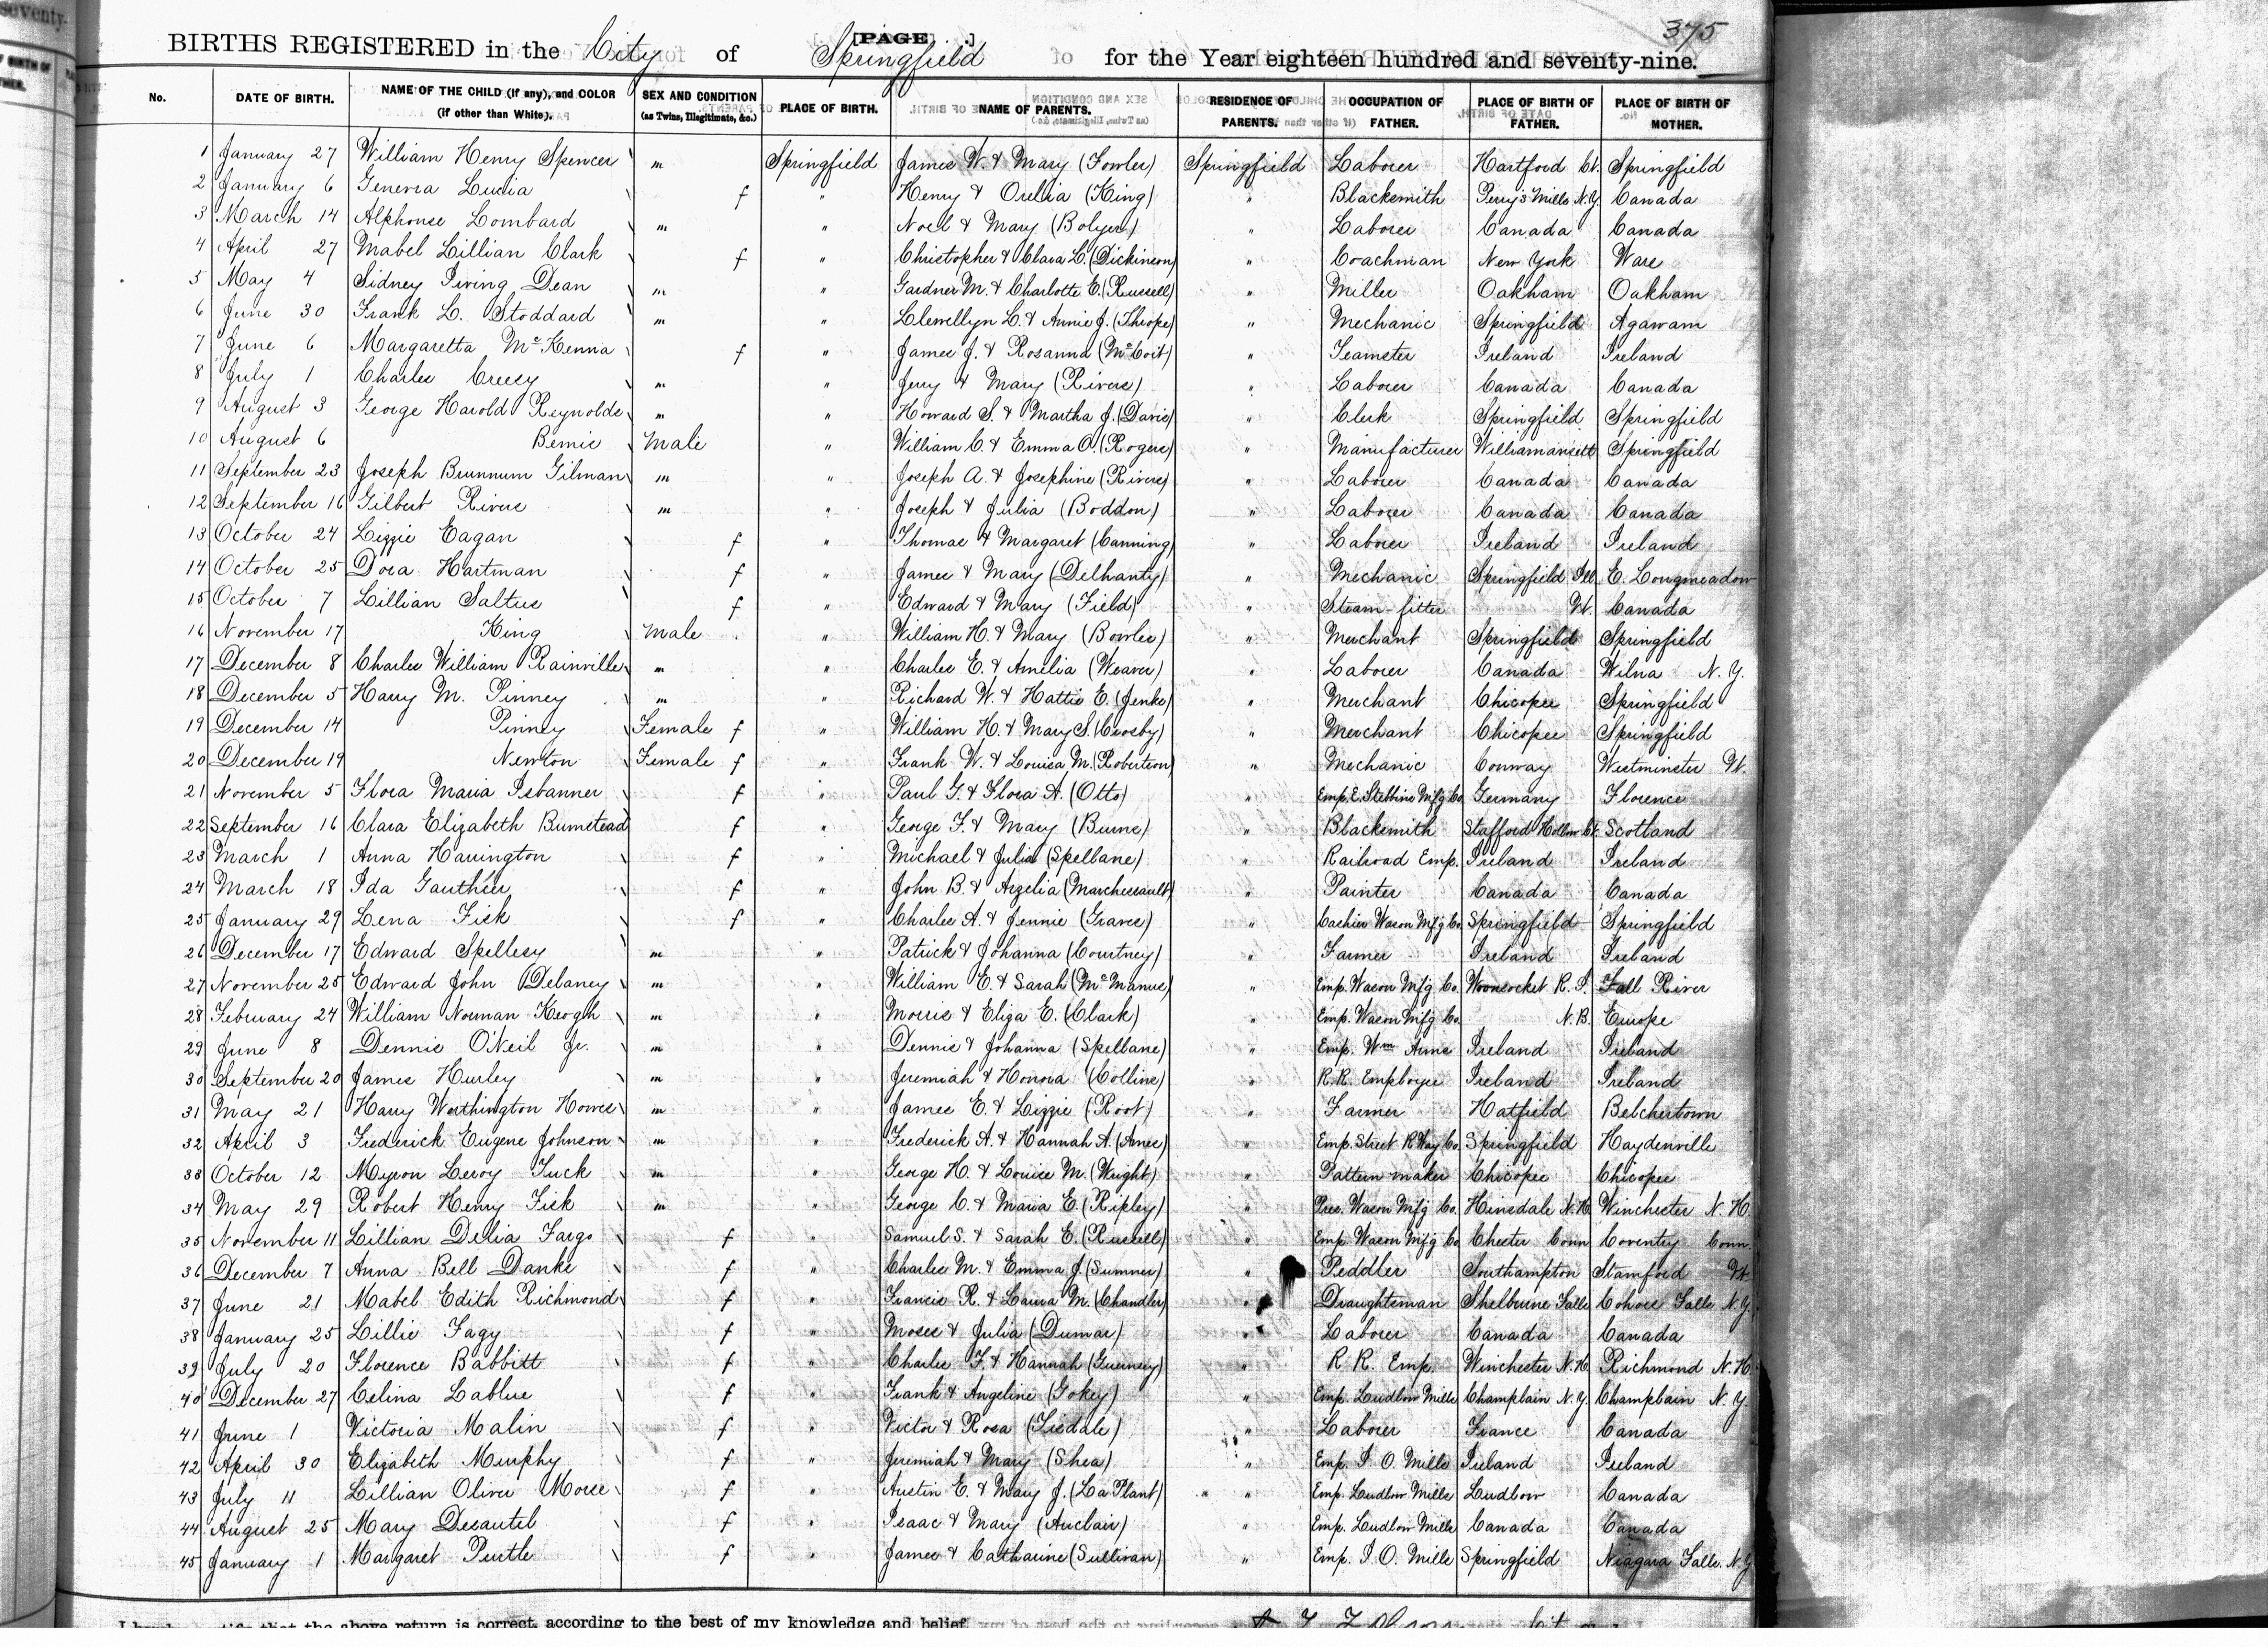 375
[PAGE .]
BIRTHS REGISTERED in the City of Springfield for the Year eighteen hundred and seventy-nine.
No. DATE OF BIRTH. NAME OF THE CHILD (if any), and COLOR (if other than White). SEX AND CONDITION (as Twins, Illegitimate, &c.) PLACE OF BIRTH. NAME OF PARENTS. RESIDENCE OF PARENTS. OCCUPATION OF FATHER. PLACE OF BIRTH OF FATHER. PLACE OF BIRTH OF MOTHER.
1 January 27 William Henry Spencer m Springfield James W. & Mary (Fowler) Springfield Laborer Hartford Ct. Springfield
2 January 6 Lucia f " Henry & Orelia (King) " Blacksmith Perry's Mills N.Y. Canada
3 March 14 Alphonse Lombard m " Noel & Mary (Bolyer) " Laborer Canada Canada
4 April 27 Mabel Lillian Clark f " Christopher & Clara L. (Dickinson) " Coachman New York Ware
5 May 4 Sidney Irving Dean m " Gardner M. & Charlotte E. (Russell) " Miller Oakham Oakham
6 June 30 Frank L. Stoddard m " Llewellyn L. & Annie J. (Thrope) " Mechanic Springfield Agawam
7 June 6 Margaretta McKenna f " James J. & Rosanna (McCoit) " Teamster Ireland Ireland
8 July 1 Charles Creesy m " Jerry & Mary (Rivers) " Laborer Canada Canada
9 August 3 George Harold Reynolds m " Howard S. & Martha J. (Davis) " Clerk Springfield Springfield
10 August 6 Bemis Male " William C. & Emma O. (Rogers) " Manufacturer Williamansett Springfield
11 September 23 Joseph Brunnum Gilman m " Joseph A. & Josephine (Rivers) " Laborer Canada Canada
12 September 16 Gilbert Rivers m " Joseph & Julia (Boddon) " Laborer Canada Canada
13 October 24 Lizzie Eagan f " Thomas & Margaret (Canning) " Laborer Ireland Ireland
14 October 25 Dora Hartman f " James & Mary (Delhanty) " Mechanic Springfield Ill. E. Longmeadow
15 October 7 Lillian Saltus f " Edward & Mary (Field) " Steam-fitter Vt. Canada
16 November 17 King Male " William H. & Mary (Bowles) " Merchant Springfield Springfield
17 December 8 Charles William Rainville m " Charles E. & Amelia (Weaver) " Laborer Canada Wilna N.Y.
18 December 5 Harry M. Pinney m " Richard W. & Hattie E. (Jenks) " Merchant Chicopee Springfield
19 December 14 Pinney Female f " William H. & Mary S. (Crosby) " Merchant Chicopee Springfield
20 December 19 Newton Female f " Frank W. & Louisa M. (Robertson) " Mechanic Conway Westminster Vt.
21 November 5 Flora Maria Isbanner f " Paul G. & Flora A. (Otto) " Emp. E. Stebbins Mfg Co. Germany Florence
22 September 16 Clara Elizabeth Bumstead f " George F. & Mary (Burns) " Blacksmith Stafford Hollow Ct. Scotland
23 March 1 Anna Harrington f " Michael & Julia (Spellane) " Railroad Emp. Ireland Ireland
24 March 18 Ida Gauthier f " John B. & Azelia (Marchessault) " Painter Canada Canada
25 January 29 Lena Fisk f " Charles A. & Jennie (Graves) " Cashier Wason Mfg Co. Springfield Springfield
26 December 17 Edward Spellesy m " Patrick & Johanna (Courtney) " Farmer Ireland Ireland
27 November 25 Edward John Delaney m " William E. & Sarah (McManus) " Emp. Wason Mfg Co. Woonsocket R.I. Fall River
28 February 24 William Norman Keogh m " Morris & Eliza E. (Clark) " Emp. Wason Mfg Co. N.B. Europe
29 June 8 Dennis O'Neil Jr. m " Dennis & Johanna (Spellane) " Emp. Wm Arms Ireland Ireland
30 September 20 James Hurley m " Jeremiah & Honora (Collins) " R.R. Employee Ireland Ireland
31 May 21 Harry Worthington Howes m " James E. & Lizzie (Root) " Farmer Hatfield Belchertown
32 April 3 Frederick Eugene Johnson m " Frederick A. & Hannah A. (Ames) " Emp. Street R Way Co. Springfield Haydenville
33 October 12 Myron Leroy Tuck m " George H. & Louise M. (Wright) " Pattern maker Chicopee Chicopee
34 May 29 Robert Henry Fisk m " George C. & Maria E. (Ripley) " Pres. Wason Mfg Co. Hinsdale N.H. Winchester N.H.
35 November 11 Lillian Delia Fargo f " Samuel S. & Sarah E. (Russell) " Emp. Wason Mfg Co Chester Conn Coventry Conn.
36 December 7 Anna Bell Danks f " Charles M. & Emma J. (Sumner) " Peddler Southampton Stamford Vt.
37 June 21 Mabel Edith Richmond f " Francis R. & Laura M. (Chandler) " Draughtsman Shelburne Falls Cohoes Falls N.Y.
38 January 25 Lillie Fagy f " Moses & Julia (Dumar) " Laborer Canada Canada
39 July 20 Florence Babbitt f " Charles F. & Hannah (Guernsey) " R.R. Emp. Winchester N.H. Richmond N.H.
40 December 27 Celina Lablue f " Frank & Angeline (Gokey) " Emp. Ludlow Mills Champlain N.Y. Champlain N.Y.
41 June 1 Victoria Malin f " Victor & Rosa (Tisdale) " Laborer France Canada
42 April 30 Elizabeth Murphy f " Jeremiah & Mary (Shea) " Emp. I.O. Mills Ireland Ireland
43 July 11 Lillian Oliver Morse f " Austin E. & Mary J. (La Plant) " " Emp. Ludlow Mills Ludlow Canada
44 August 25 Mary Desautel f " Isaac & Mary (Auclair) " Emp. Ludlow Mills Canada Canada
45 January 1 Margaret Purtle f " James & Catharine (Sullivan) " Emp. I.O. Mills Springfield Niagara Falls. N.Y
that the above return is correct, according to the best of my knowledge and belief.